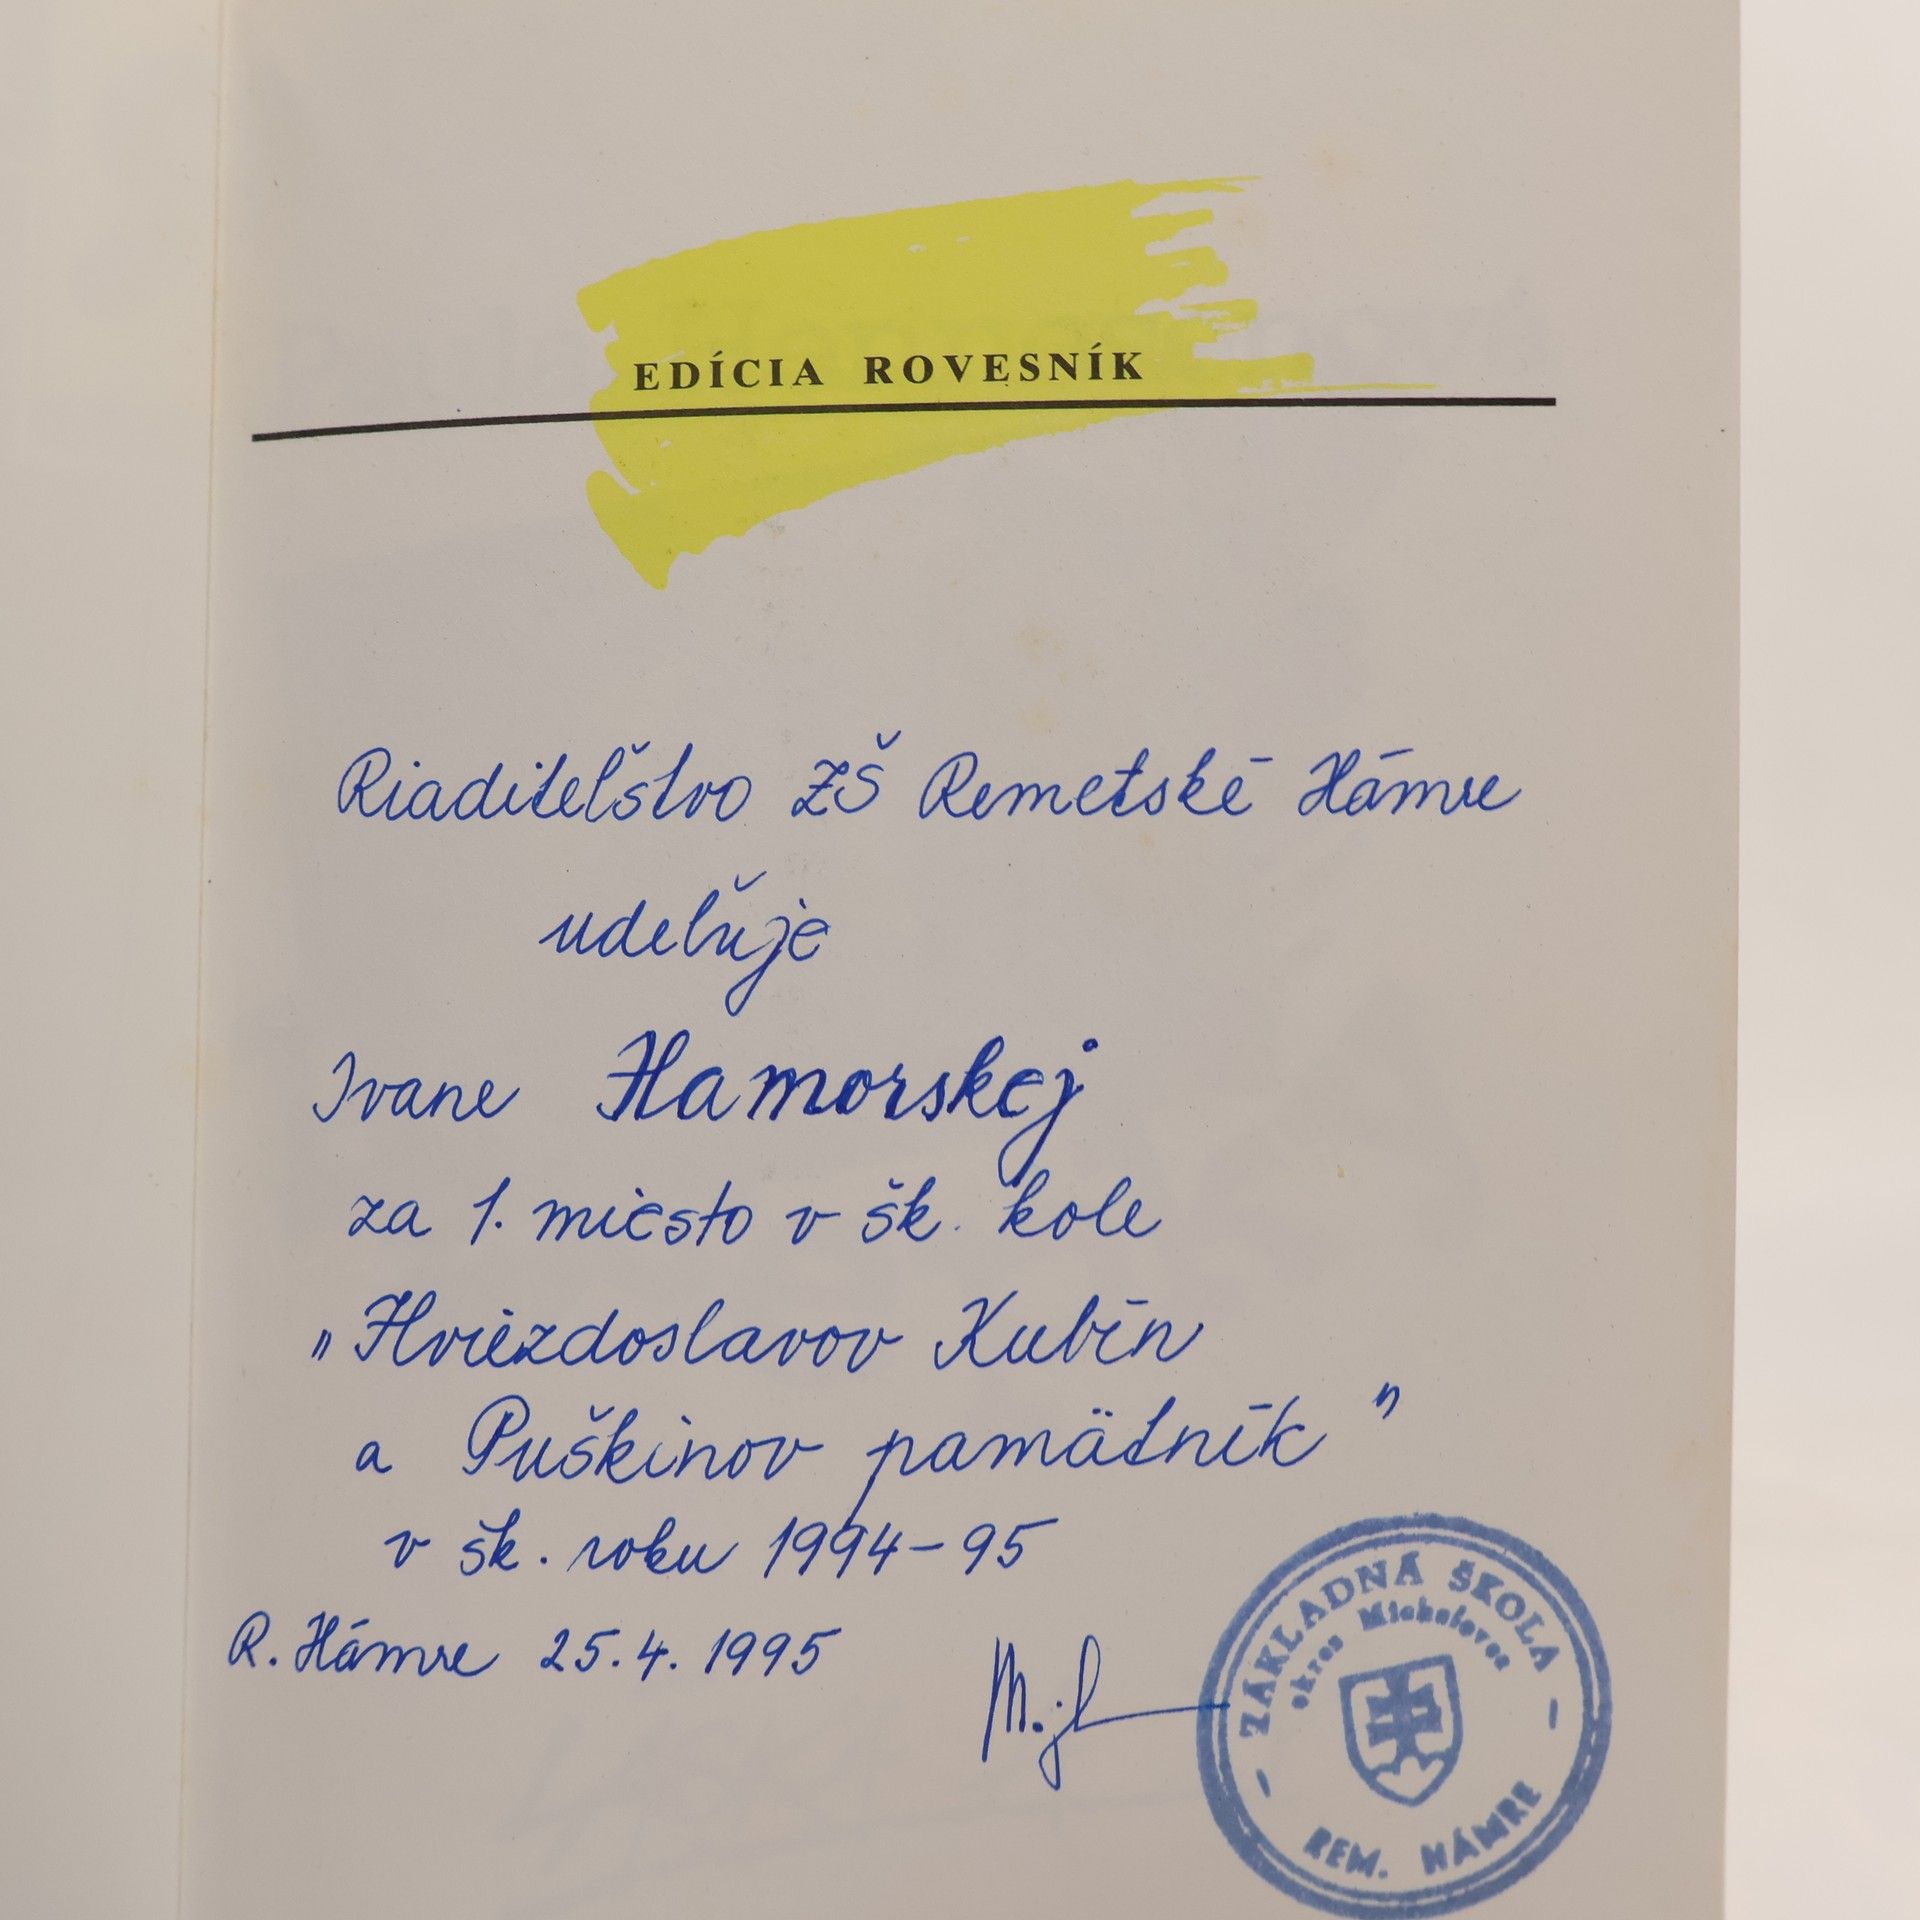 EDÍCIA ROVESNÍK
Riaditeľstvo ZŠ Remetské Hámre
udeľuje
Ivane Hamorskej
za 1. miesto v šk. kole
„Hviezdoslavov Kubín
a Puškinov pamätník"
v šk. roku 1994-95
R. Hámre 25.4.1995
ZÁKLADNÁ ŠKOLA
okres Michalovce
REM. HÁMRE